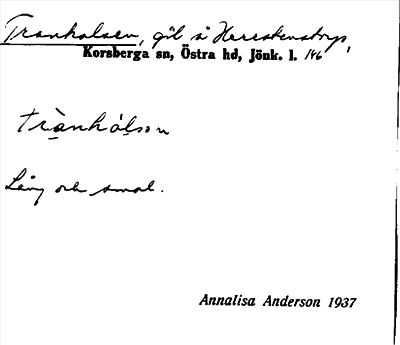 Tranhalsen, göl å Herrstenstorp,
Korsberga sn, Östra hd, Jönk. l. 146
trànhálsən
Lång och smal.
Annalisa Anderson 1937